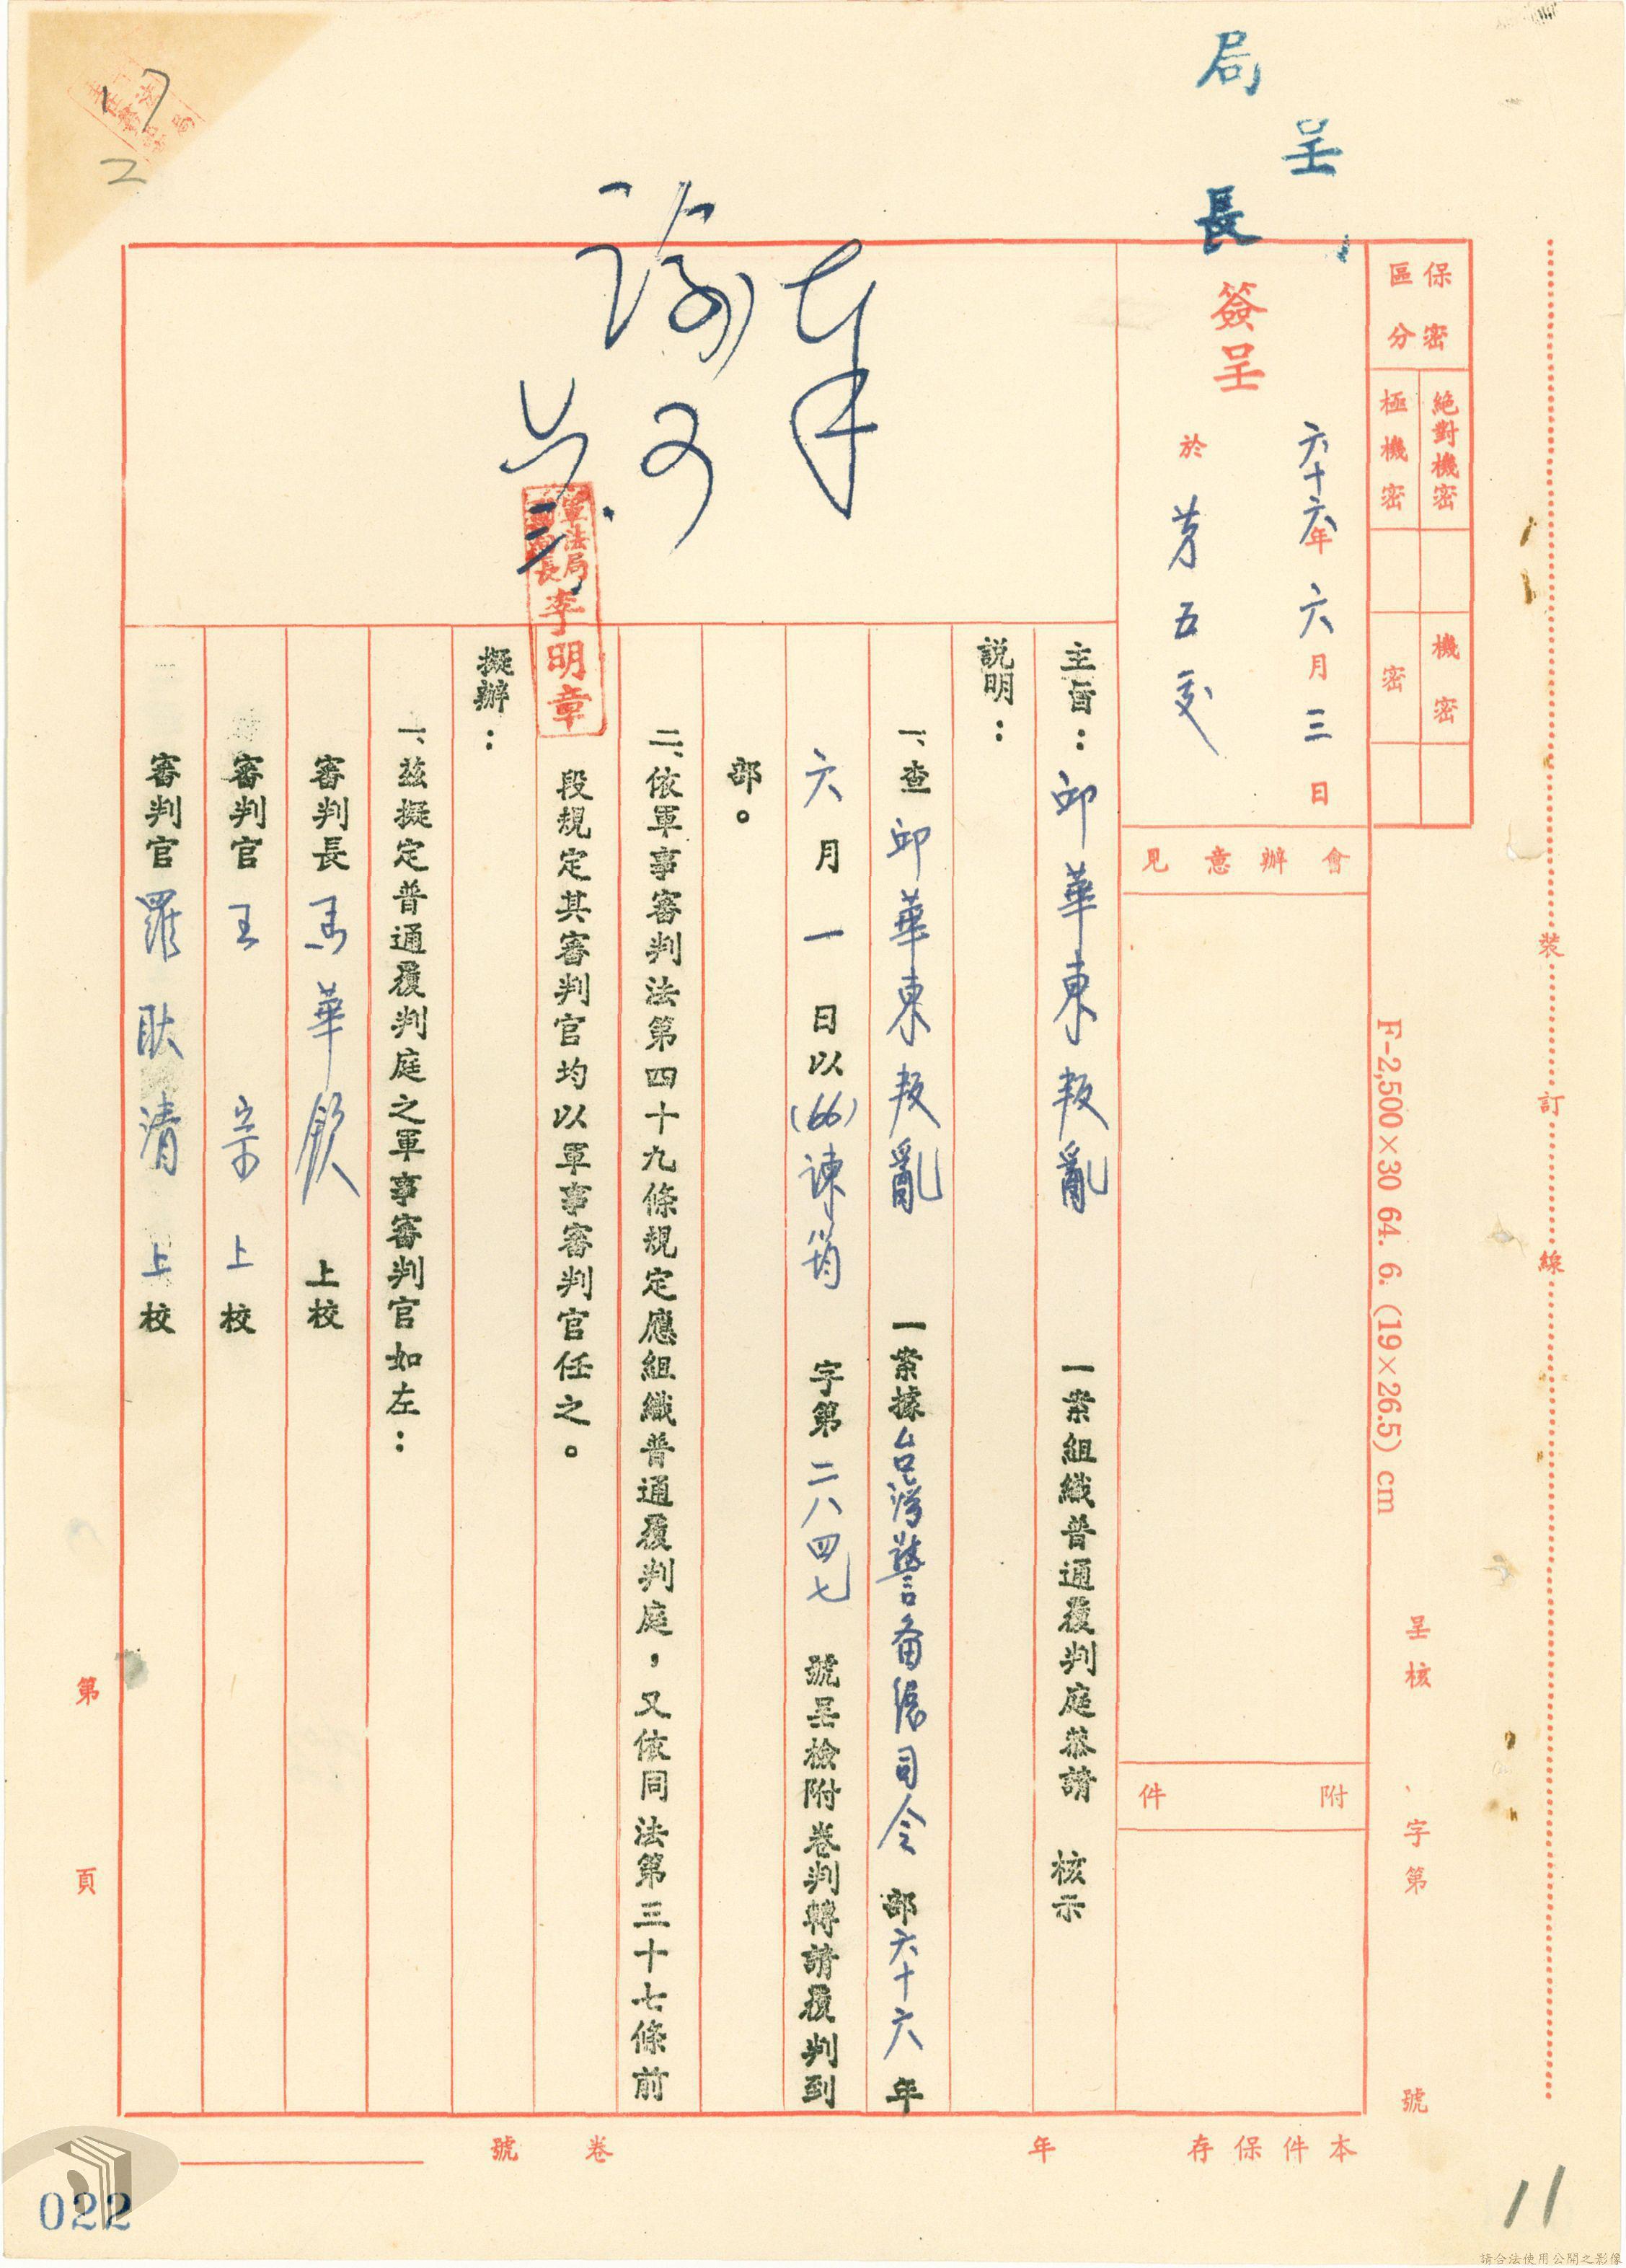 呈
局長
保密區分
絕對機密
極機密
機密
密
簽呈
六十六年六月三日
於第五處
會辦意見
附件
奉
諭可
軍法局副局長李明章
主旨：邱華東叛亂一案組織普通覆判庭恭請 核示
說明：
一、查邱華東叛亂一案據台灣警备總司令部六十六年
六月一日以(66)諫筠字第二八四七號呈檢附卷判轉請覆判到
部。
二、依軍事審判法第四十九條規定應組織普通覆判庭，又依同法第三十七條前
段規定其審判官均以軍事審判官任之。
擬辦：
一、茲擬定普通覆判庭之軍事審判官如左：
審判長 馬華欽 上校
審判官 王宗 上校
審判官 羅耿清 上校
裝訂線
F-2,500×30 64. 6. (19×26.5) cm
呈核 字第 號
本件保存 年
卷 號
第 頁
17
2
022
11
請合法使用公開之影像